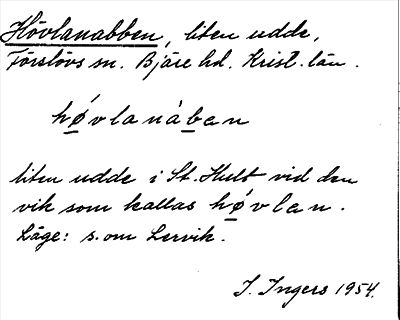 Hövlanabben, liten udde,
Förslövs sn. Bjäre hd. Krist. län.
hǿvlanàban
liten udde i St. Hult vid den
vik som kallas hǿvlan.
Läge: s. om Lervik.
I. Ingers 1954.